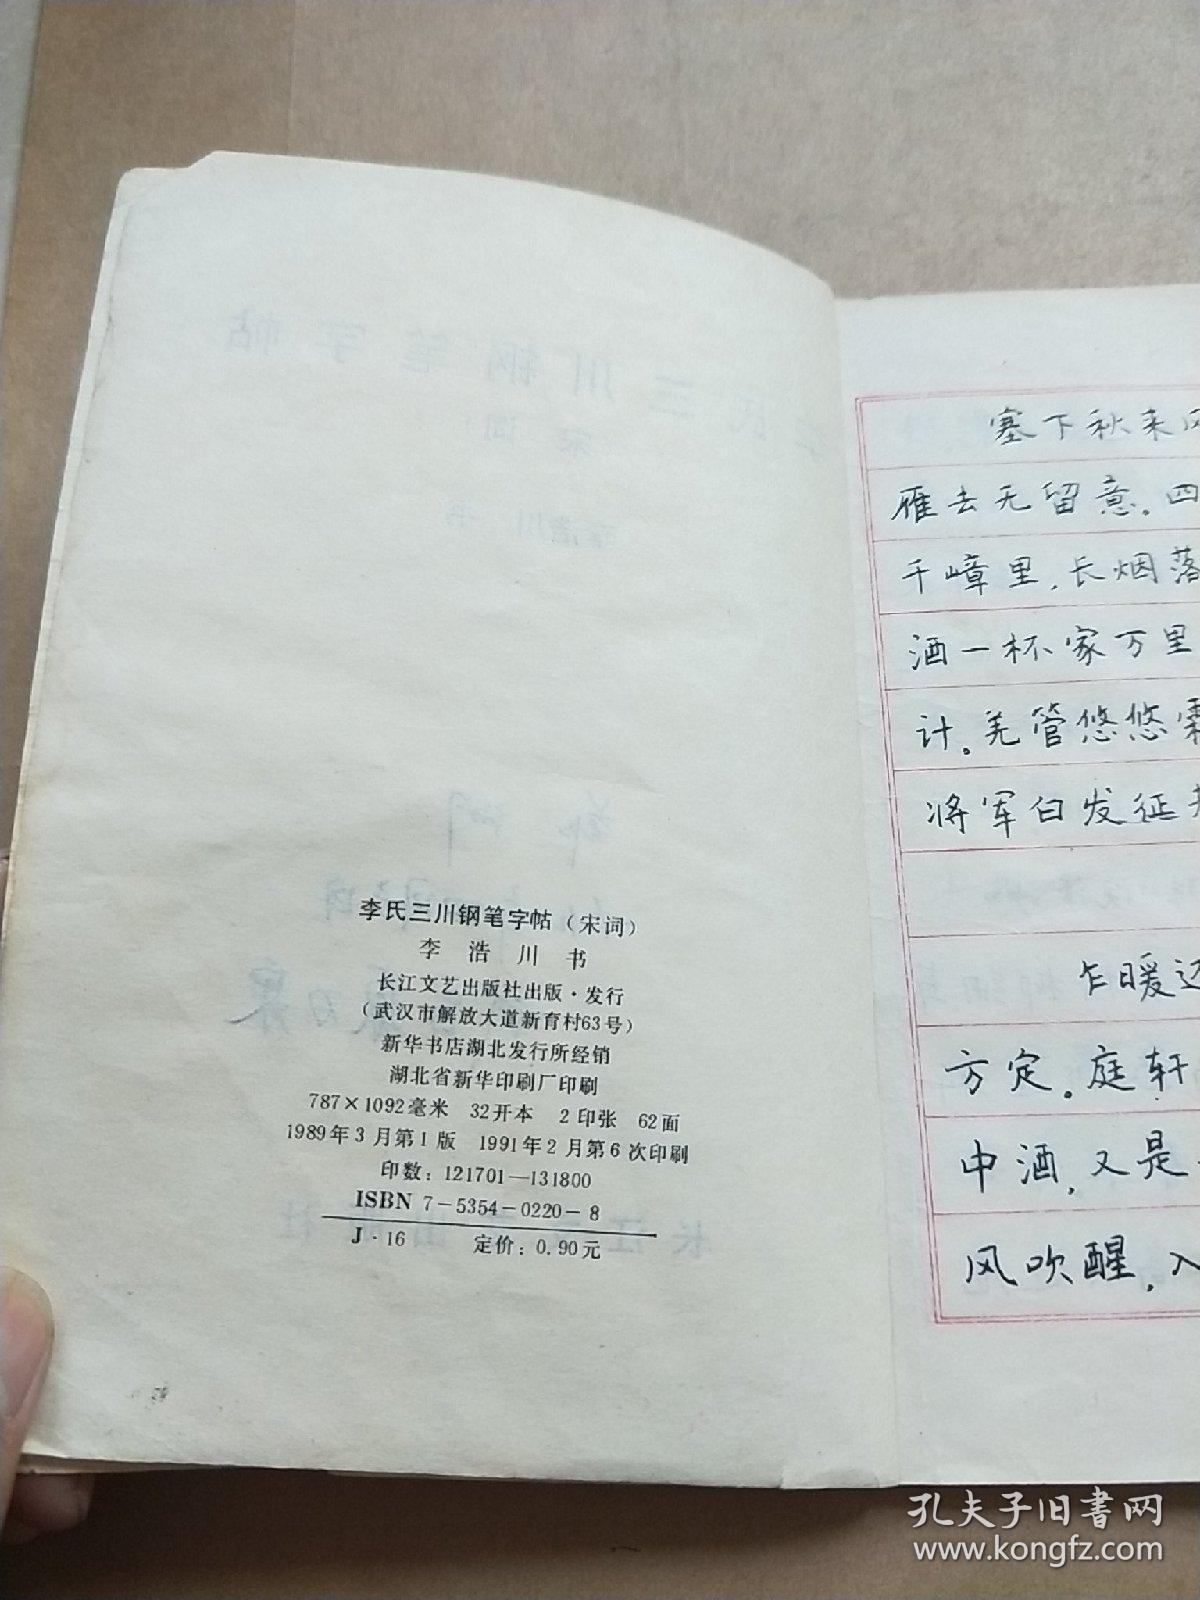 李氏三川钢笔字帖（宋词）
李浩川书
长江文艺出版社出版·发行
（武汉市解放大道新育村63号）
新华书店湖北发行所经销
湖北省新华印刷厂印刷
787×1092毫米 32开本 2印张 62面
1989年3月第1版 1991年2月第6次印刷
印数：121701—131800
ISBN 7-5354-0220-8
J·16 定价：0.90元
塞下秋来风
雁去无留意。四
千嶂里，长烟落
酒一杯家万里
计。羌管悠悠霜
将军白发征
乍暖还
方定。庭轩
中酒，又是
风吹醒，入
孔夫子旧书网
www.kongfz.com